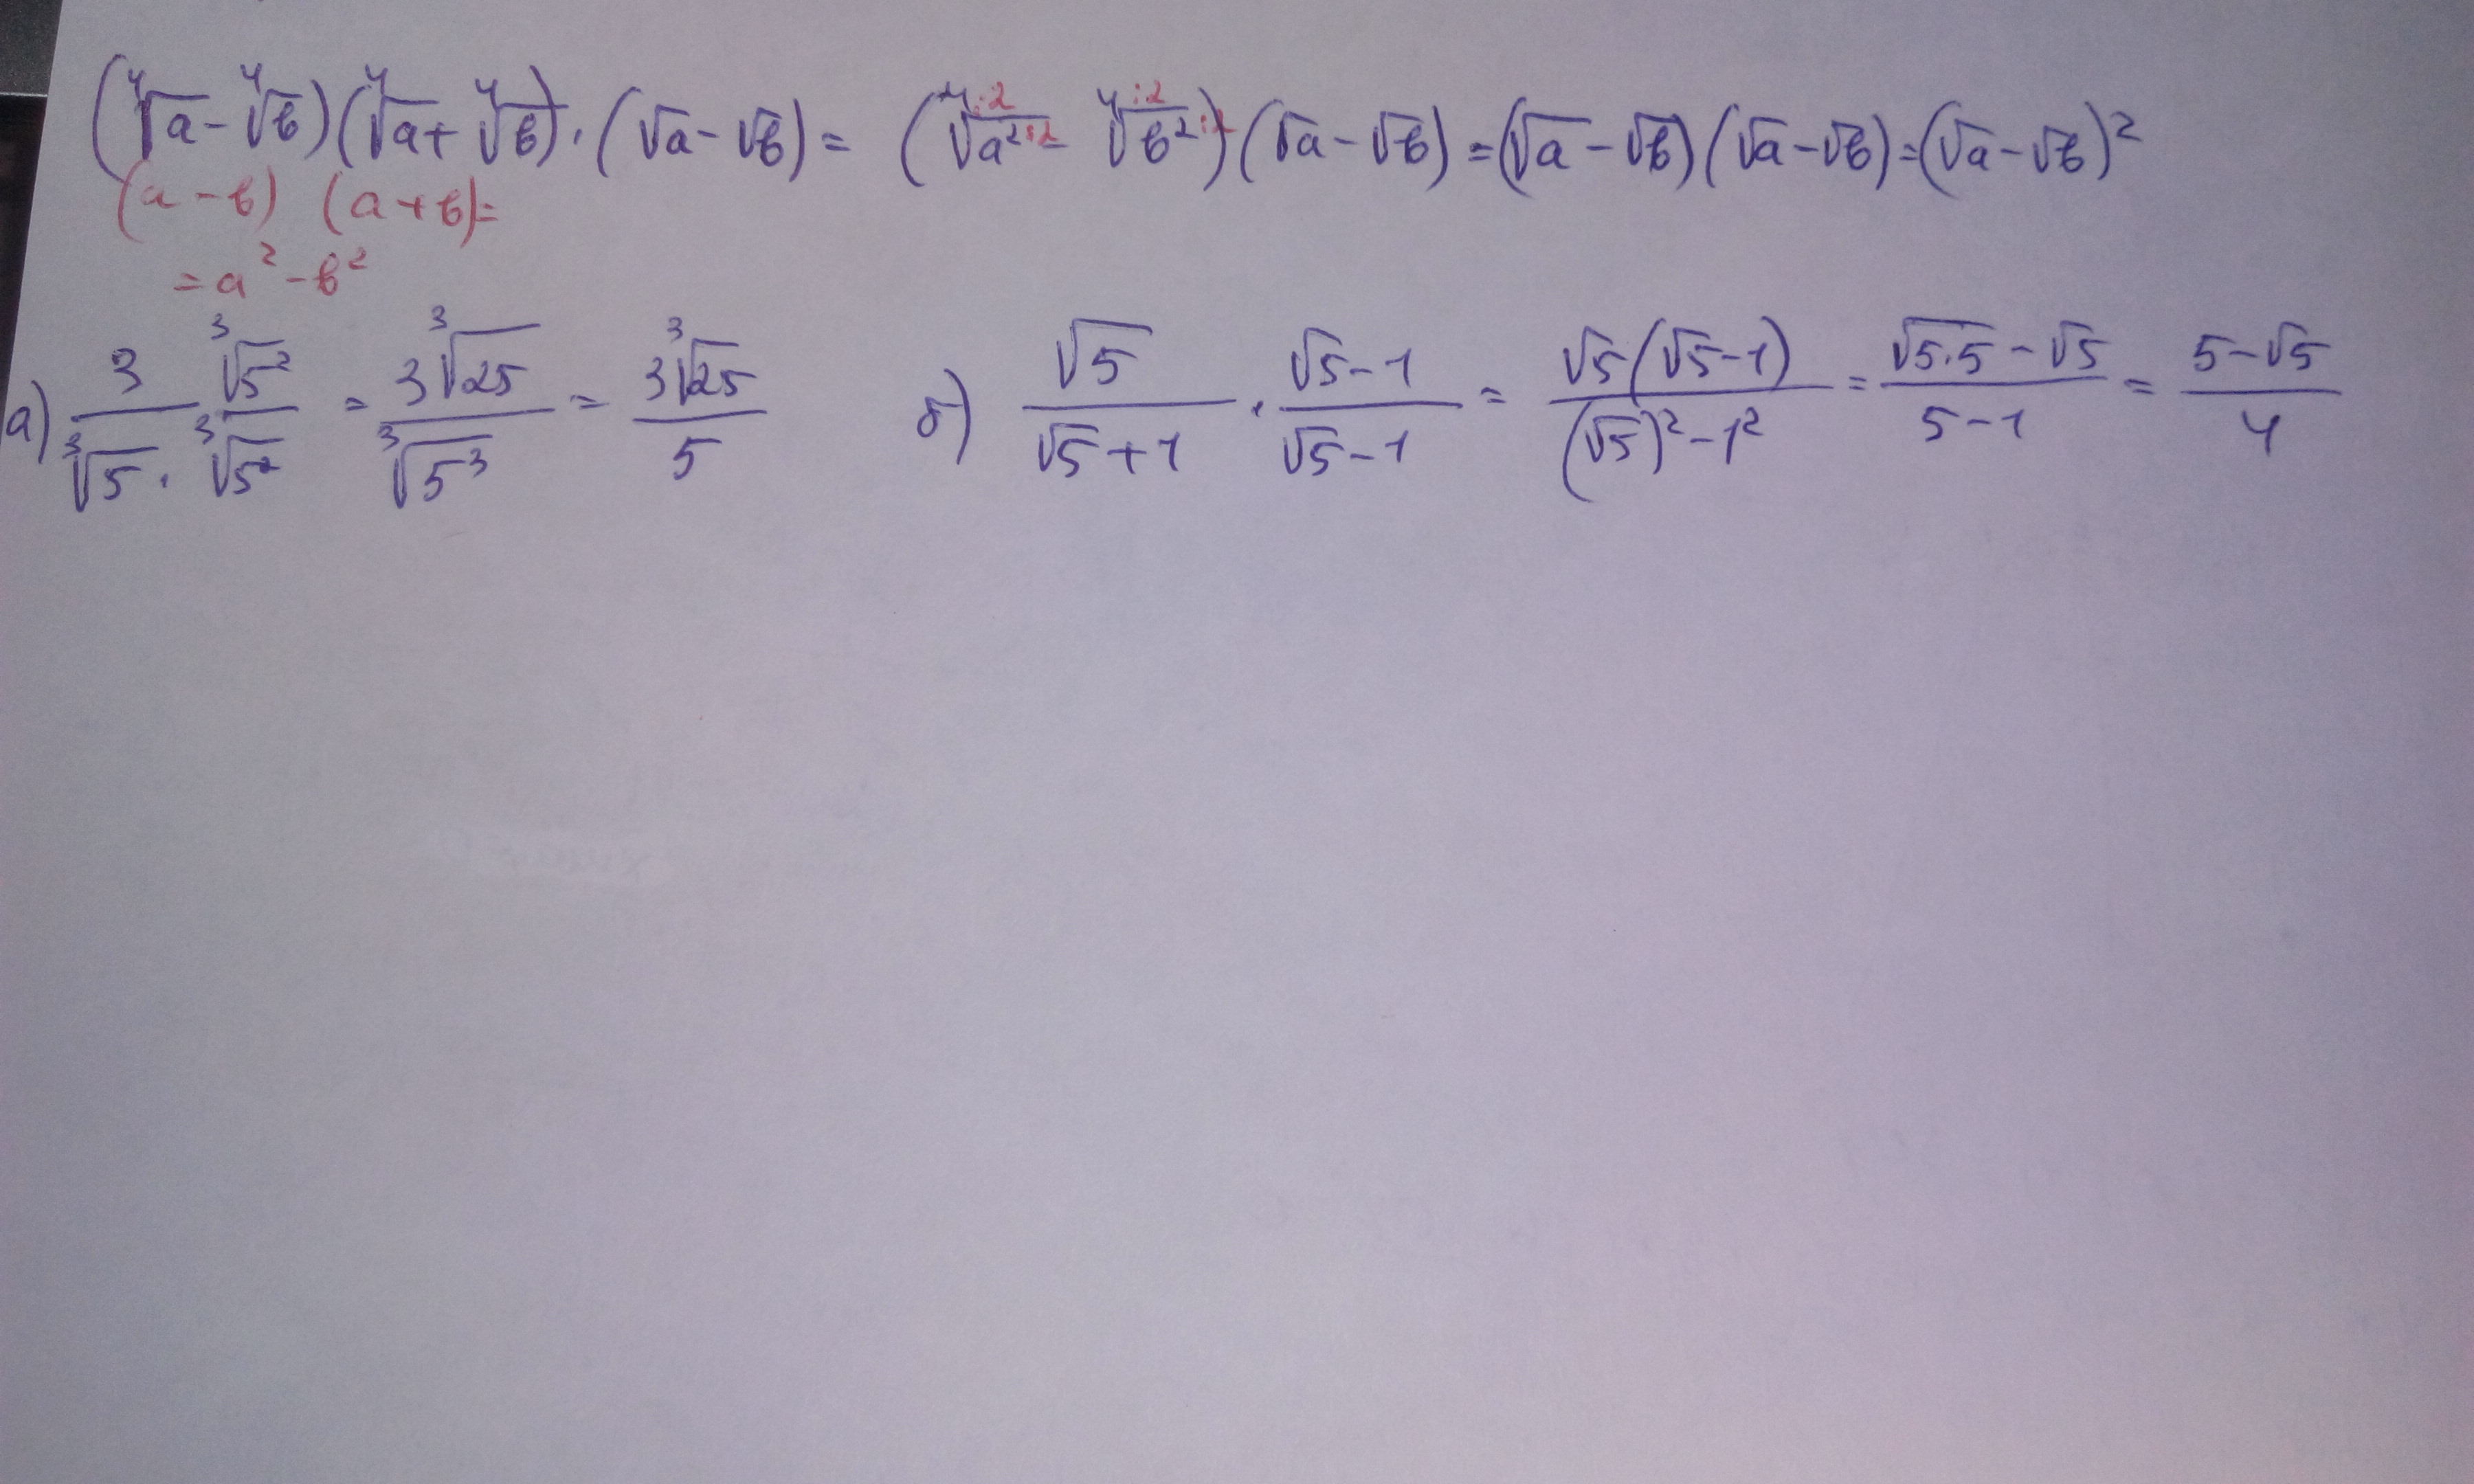 (⁴√a - ⁴√b)(⁴√a + ⁴√b) · (√a - √b) = (⁴:²√a²:² - ⁴:²√b²:²)(√a - √b) = (√a - √b)(√a - √b) = (√a - √b)²
(a - b) (a + b) =
= a² - b²
а) 3/³√5 · ³√5²/³√5² = 3³√25/³√5³ = 3³√25/5 б) √5/(√5+1) · (√5-1)/(√5-1) = √5(√5-1)/((√5)²-1²) = (√5·5 - √5)/(5-1) = (5-√5)/4